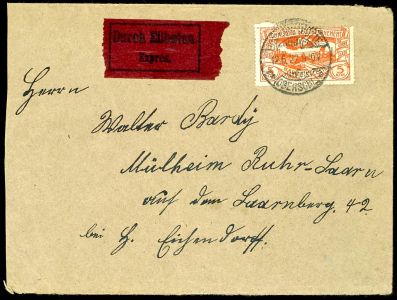 Durch Eilboten
Expres.
Herrn
Walter Bardy
Mülheim Ruhr-Laarn
auf dem Laarnberg. 42
bei H. Eichendorff.
5